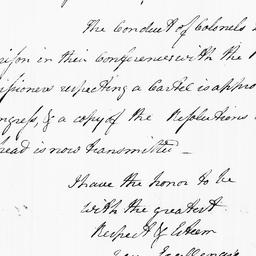 The Conduct of Colonels
rison in their Conferences with the
ssioners respecting a Cartel is appro
ngress, & a copy of the Resolutions
head is now transmitted –
I have the honor to be
with the greatest
Respect & Esteem
Your Excellency's